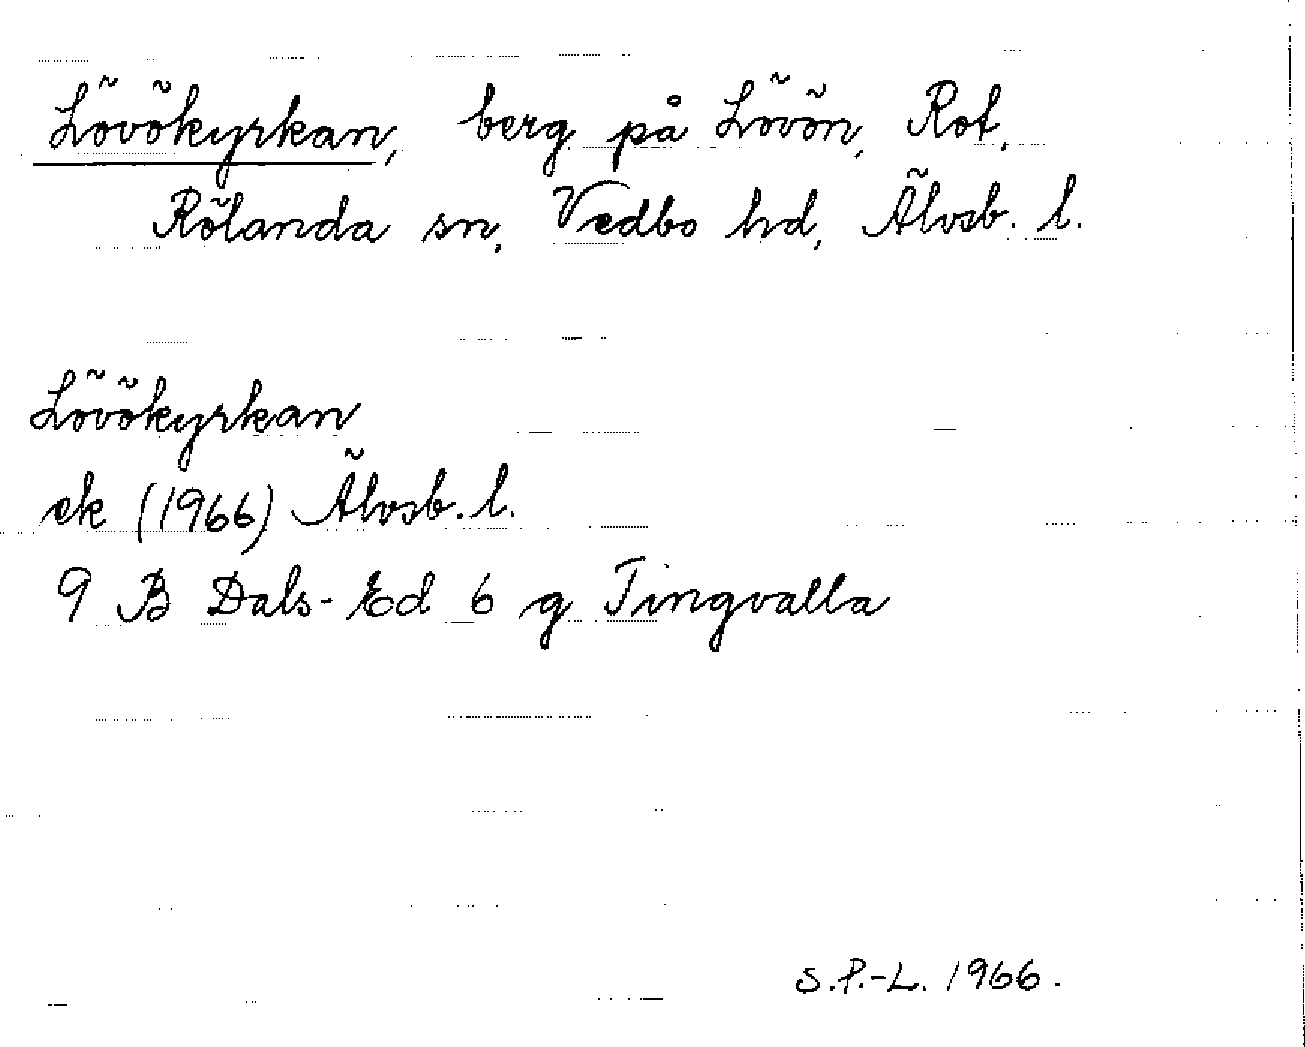 Lövökyrkan, berg på Lövön, Rot,
Rölanda sn, Vedbo hd, Älvsb. l.
Lövökyrkan
ek (1966) Älvsb. l.
9 B Dals-Ed 6 g Tingvalla
S.P.-L. 1966.